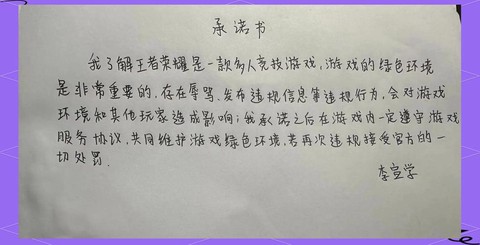 承诺书
我了解王者荣耀是一款多人竞技游戏,游戏的绿色环境
是非常重要的,存在辱骂、发布违规信息等违规行为,会对游戏
环境和其他玩家造成影响;我承诺之后在游戏内一定遵守游戏
服务协议,共同维护游戏绿色环境,若再次违规接受官方的一
切处罚.
李宣学